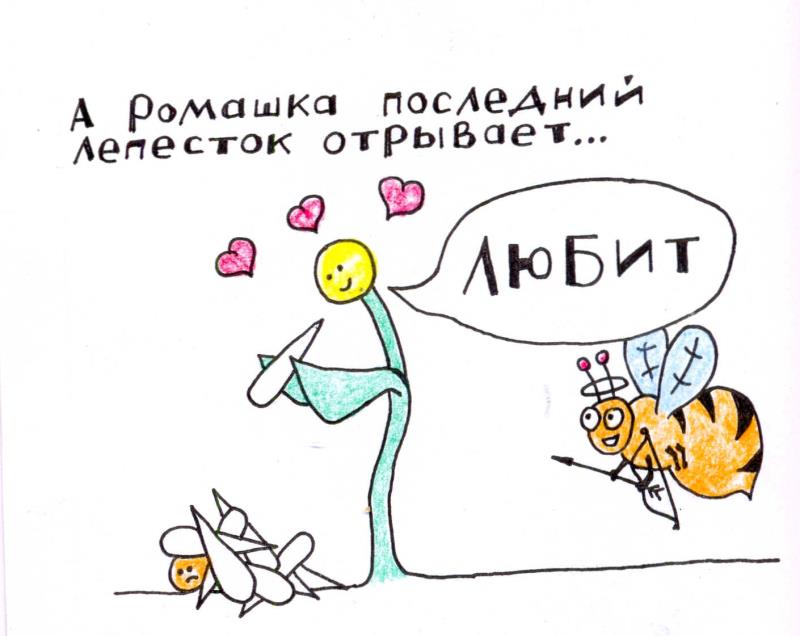 А Ромашка последний
лепесток отрывает...
ЛЮБИТ